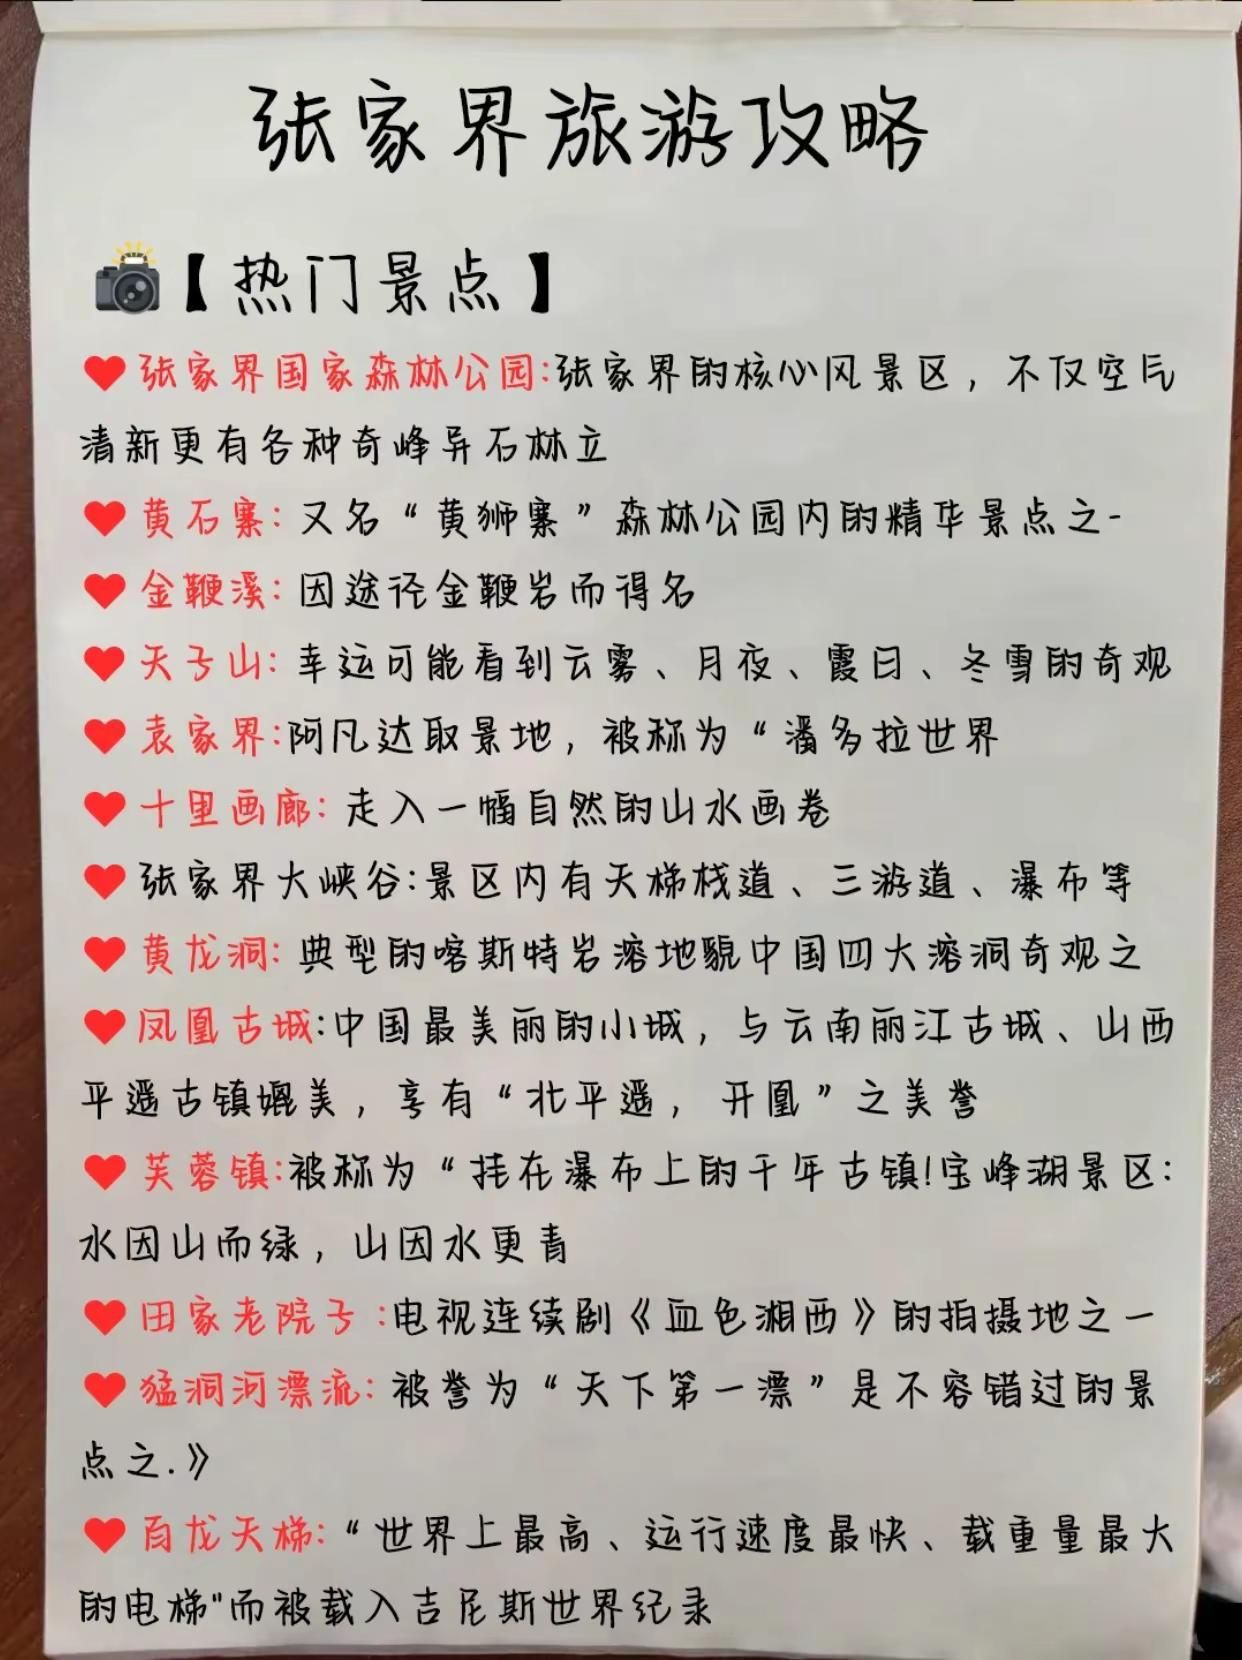 张家界旅游攻略
【热门景点】
张家界国家森林公园:张家界的核心风景区，不仅空气
清新更有各种奇峰异石林立
黄石寨: 又名“黄狮寨”森林公园内的精华景点之-
金鞭溪: 因途径金鞭岩而得名
天子山: 幸运可能看到云雾、月夜、霞日、冬雪的奇观
袁家界:阿凡达取景地，被称为“潘多拉世界
十里画廊: 走入一幅自然的山水画卷
张家界大峡谷:景区内有天梯栈道、三游道、瀑布等
黄龙洞: 典型的喀斯特岩溶地貌中国四大溶洞奇观之
凤凰古城:中国最美丽的小城，与云南丽江古城、山西
平遥古镇媲美，享有“北平遥，开凰”之美誉
芙蓉镇:被称为“挂在瀑布上的千年古镇!宝峰湖景区:
水因山而绿，山因水更青
田家老院子:电视连续剧《血色湘西》的拍摄地之一
猛洞河漂流: 被誉为“天下第一漂”是不容错过的景
点之.》
百龙天梯:“世界上最高、运行速度最快、载重量最大
的电梯"而被载入吉尼斯世界纪录